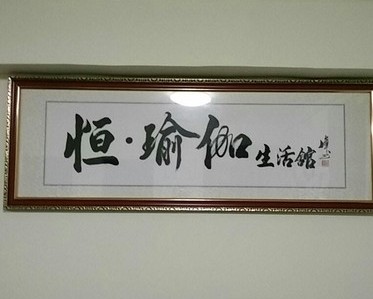 恒·瑜伽生活馆